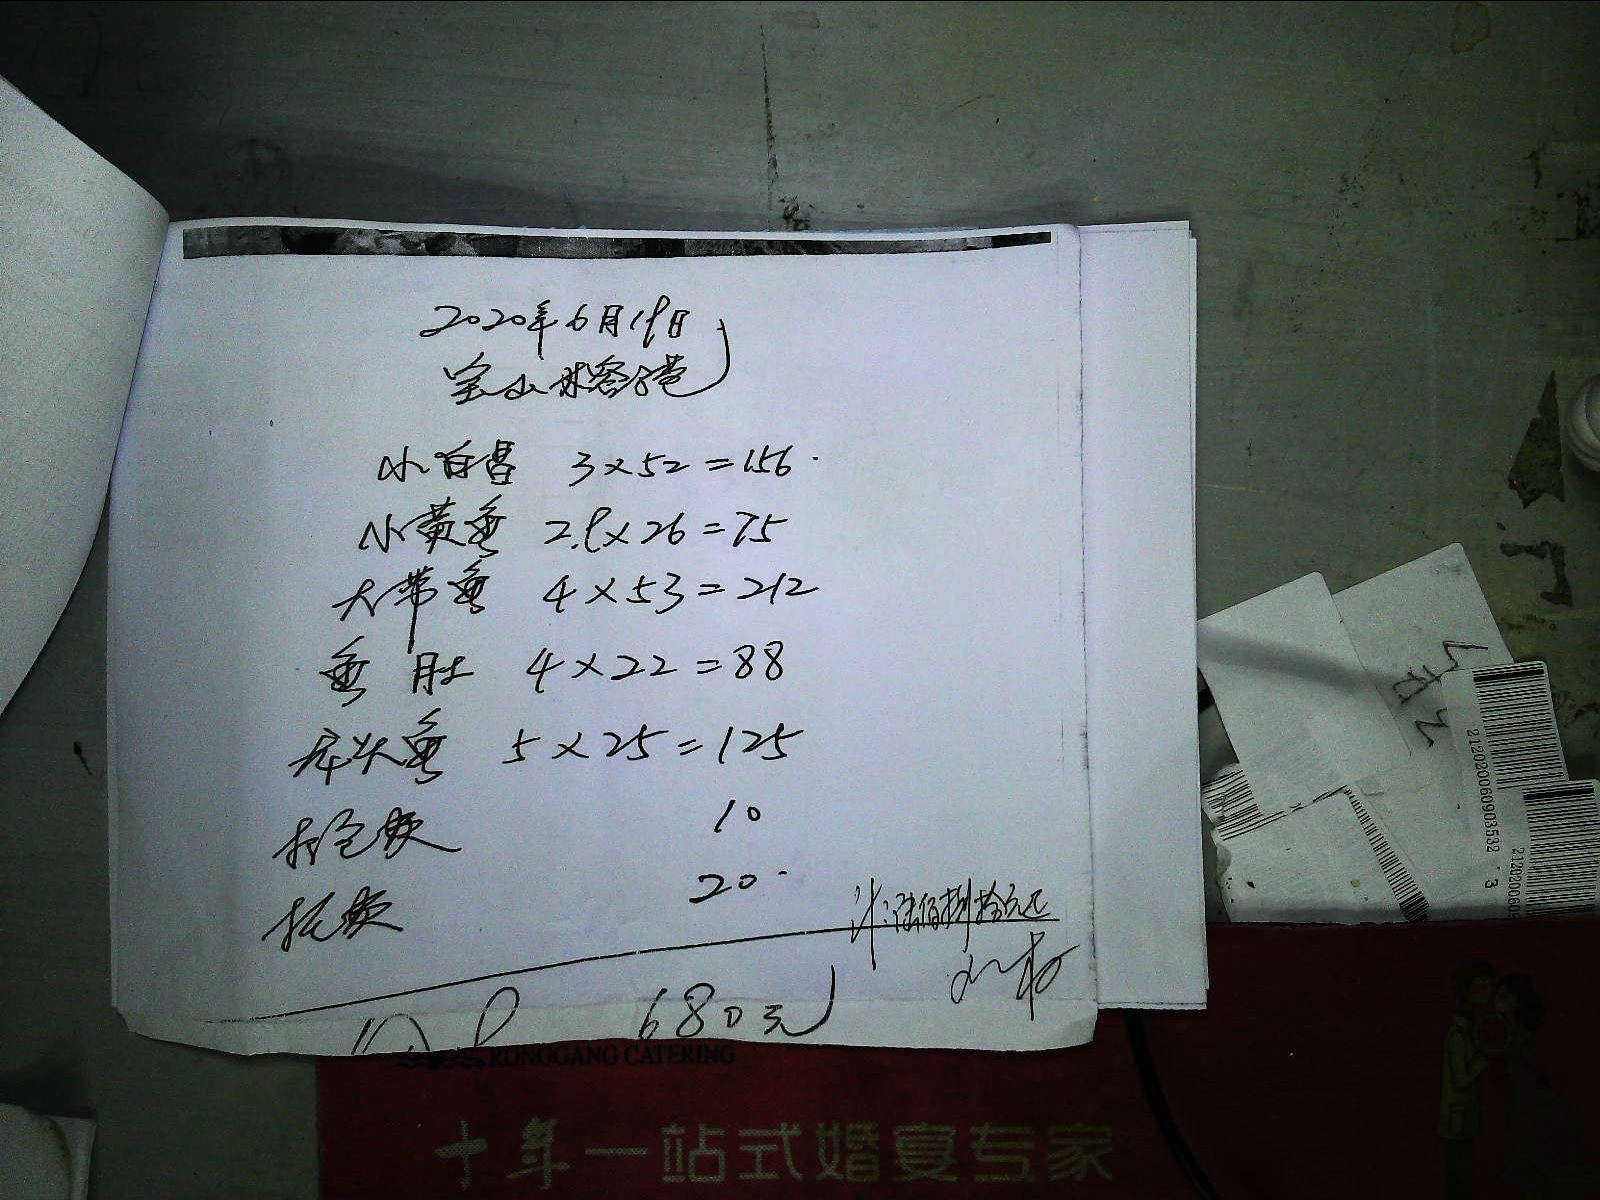 2020年6月19日
宝山
小白昌 3×52=156
小黄鱼 2.9×26=75
大带鱼 4×53=212
鱼肚 4×22=88
龙头鱼 5×25=125
打包费 10
20
680元
RONGGANG CATERING
十年一站式婚宴专家
212020060903532 3
21202006